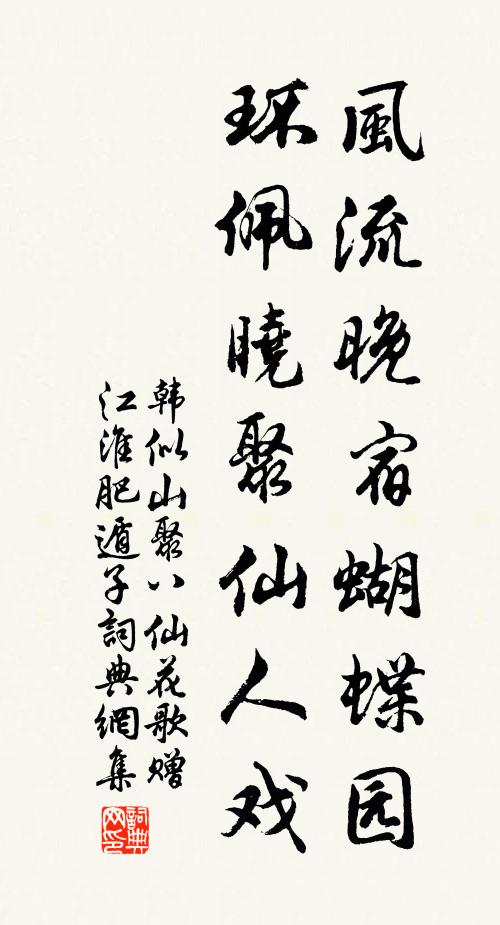 風流晚宿蝴蝶园
环佩曉聚仙人戏
韩似山聚八仙花歌赠
江淮肥遁子詞典網集
詞典网印